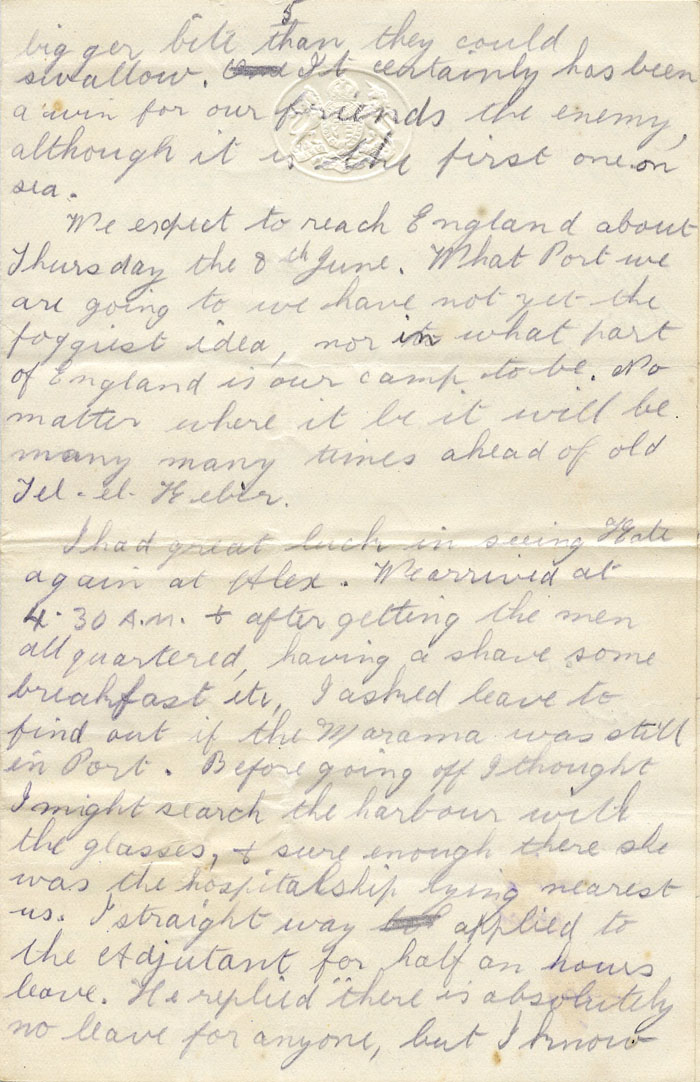 5
bigger bite than they could
swallow. It certainly has been
a win for our friends the enemy,
although it is the first one on
sea.
We expect to reach England about
Thursday the 8th June. What Port we
are going to we have not yet the
foggiest idea, nor in what part
of England is our camp to be. No
matter where it be it will be
many many times ahead of old
Tel-el-Keber.
I had great luck in seeing Kate
again at Alex. We arrived at
4.30 A.M. & after getting the men
all quartered, having a shave some
breakfast etc, I asked leave to
find out if the Marama was still
in Port. Before going off I thought
I might search the harbour with
the glasses, & sure enough there she
was the hospitalship lying nearest
us. I straight way applied to
the Adjutant for half an hours
leave. He replied "there is absolutely
no leave for anyone, but I know